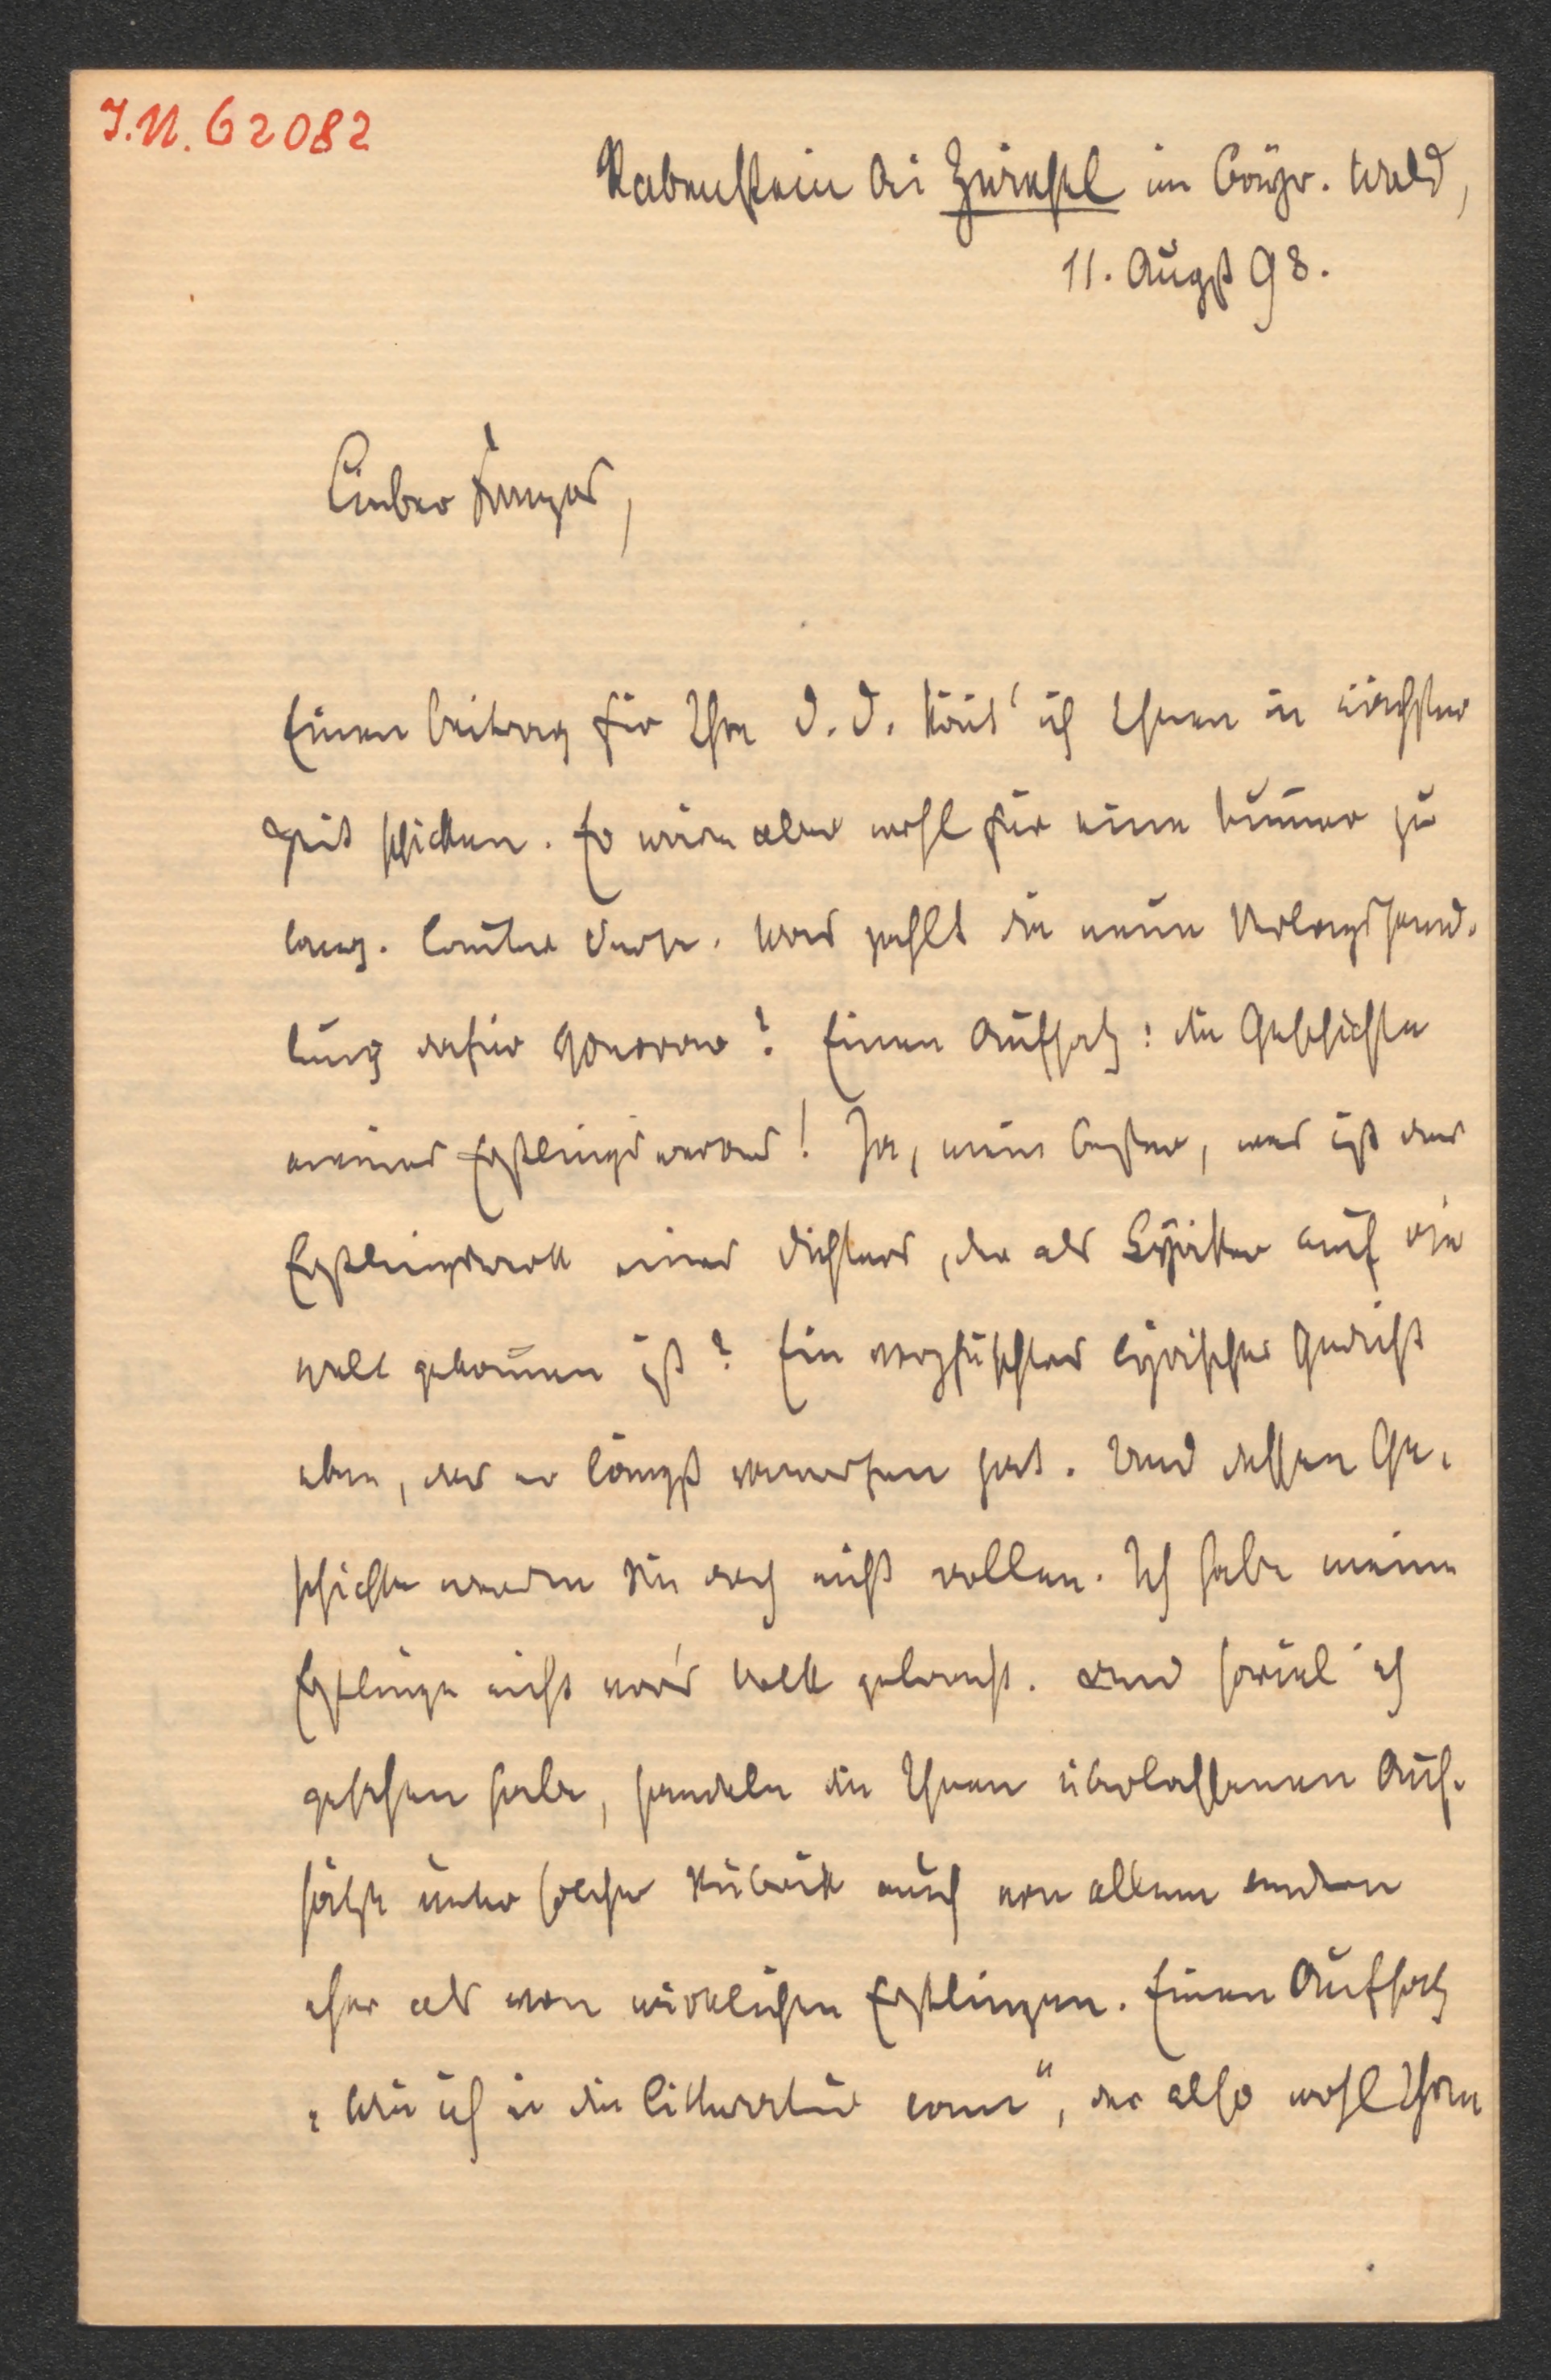 J.N. 62082
Rabenstein bei Zwiesel im bayr. Wald,
11. Augst 98.
Lieber Franzos,
Einen Beitrag für Ihre D. D. könt' ich Ihnen in nächster
Zeit schicken. Er wäre aber wohl für eine Numer zu
lang. Lauter Verse. Was zahlt die neue Verlagshand-
lung dafür Honorar? Einen Aufsatz: die Geschichte
meines Erstlingswerkes! Ja, mein Bester, was ist das
Erstlingswerk eines Dichters, der als Lyriker auf die
Welt gekomen ist? Ein verpfuschtes lyrisches Gedicht
eben, das er längst verworfen hat. Und dessen Ge-
schichte werden Sie doch nicht wollen. Ich habe meine
Erstlinge nicht vor's Volk gebracht. Und soviel ich
gesehen habe, handeln die Ihnen überlassenen Auf-
sätze unter solcher Rubrik auch von allem andern
eher als von wirklichen Erstlingen. Einen Aufsatz
"Wie ich in die Litteratur kam", der also wohl Ihrem